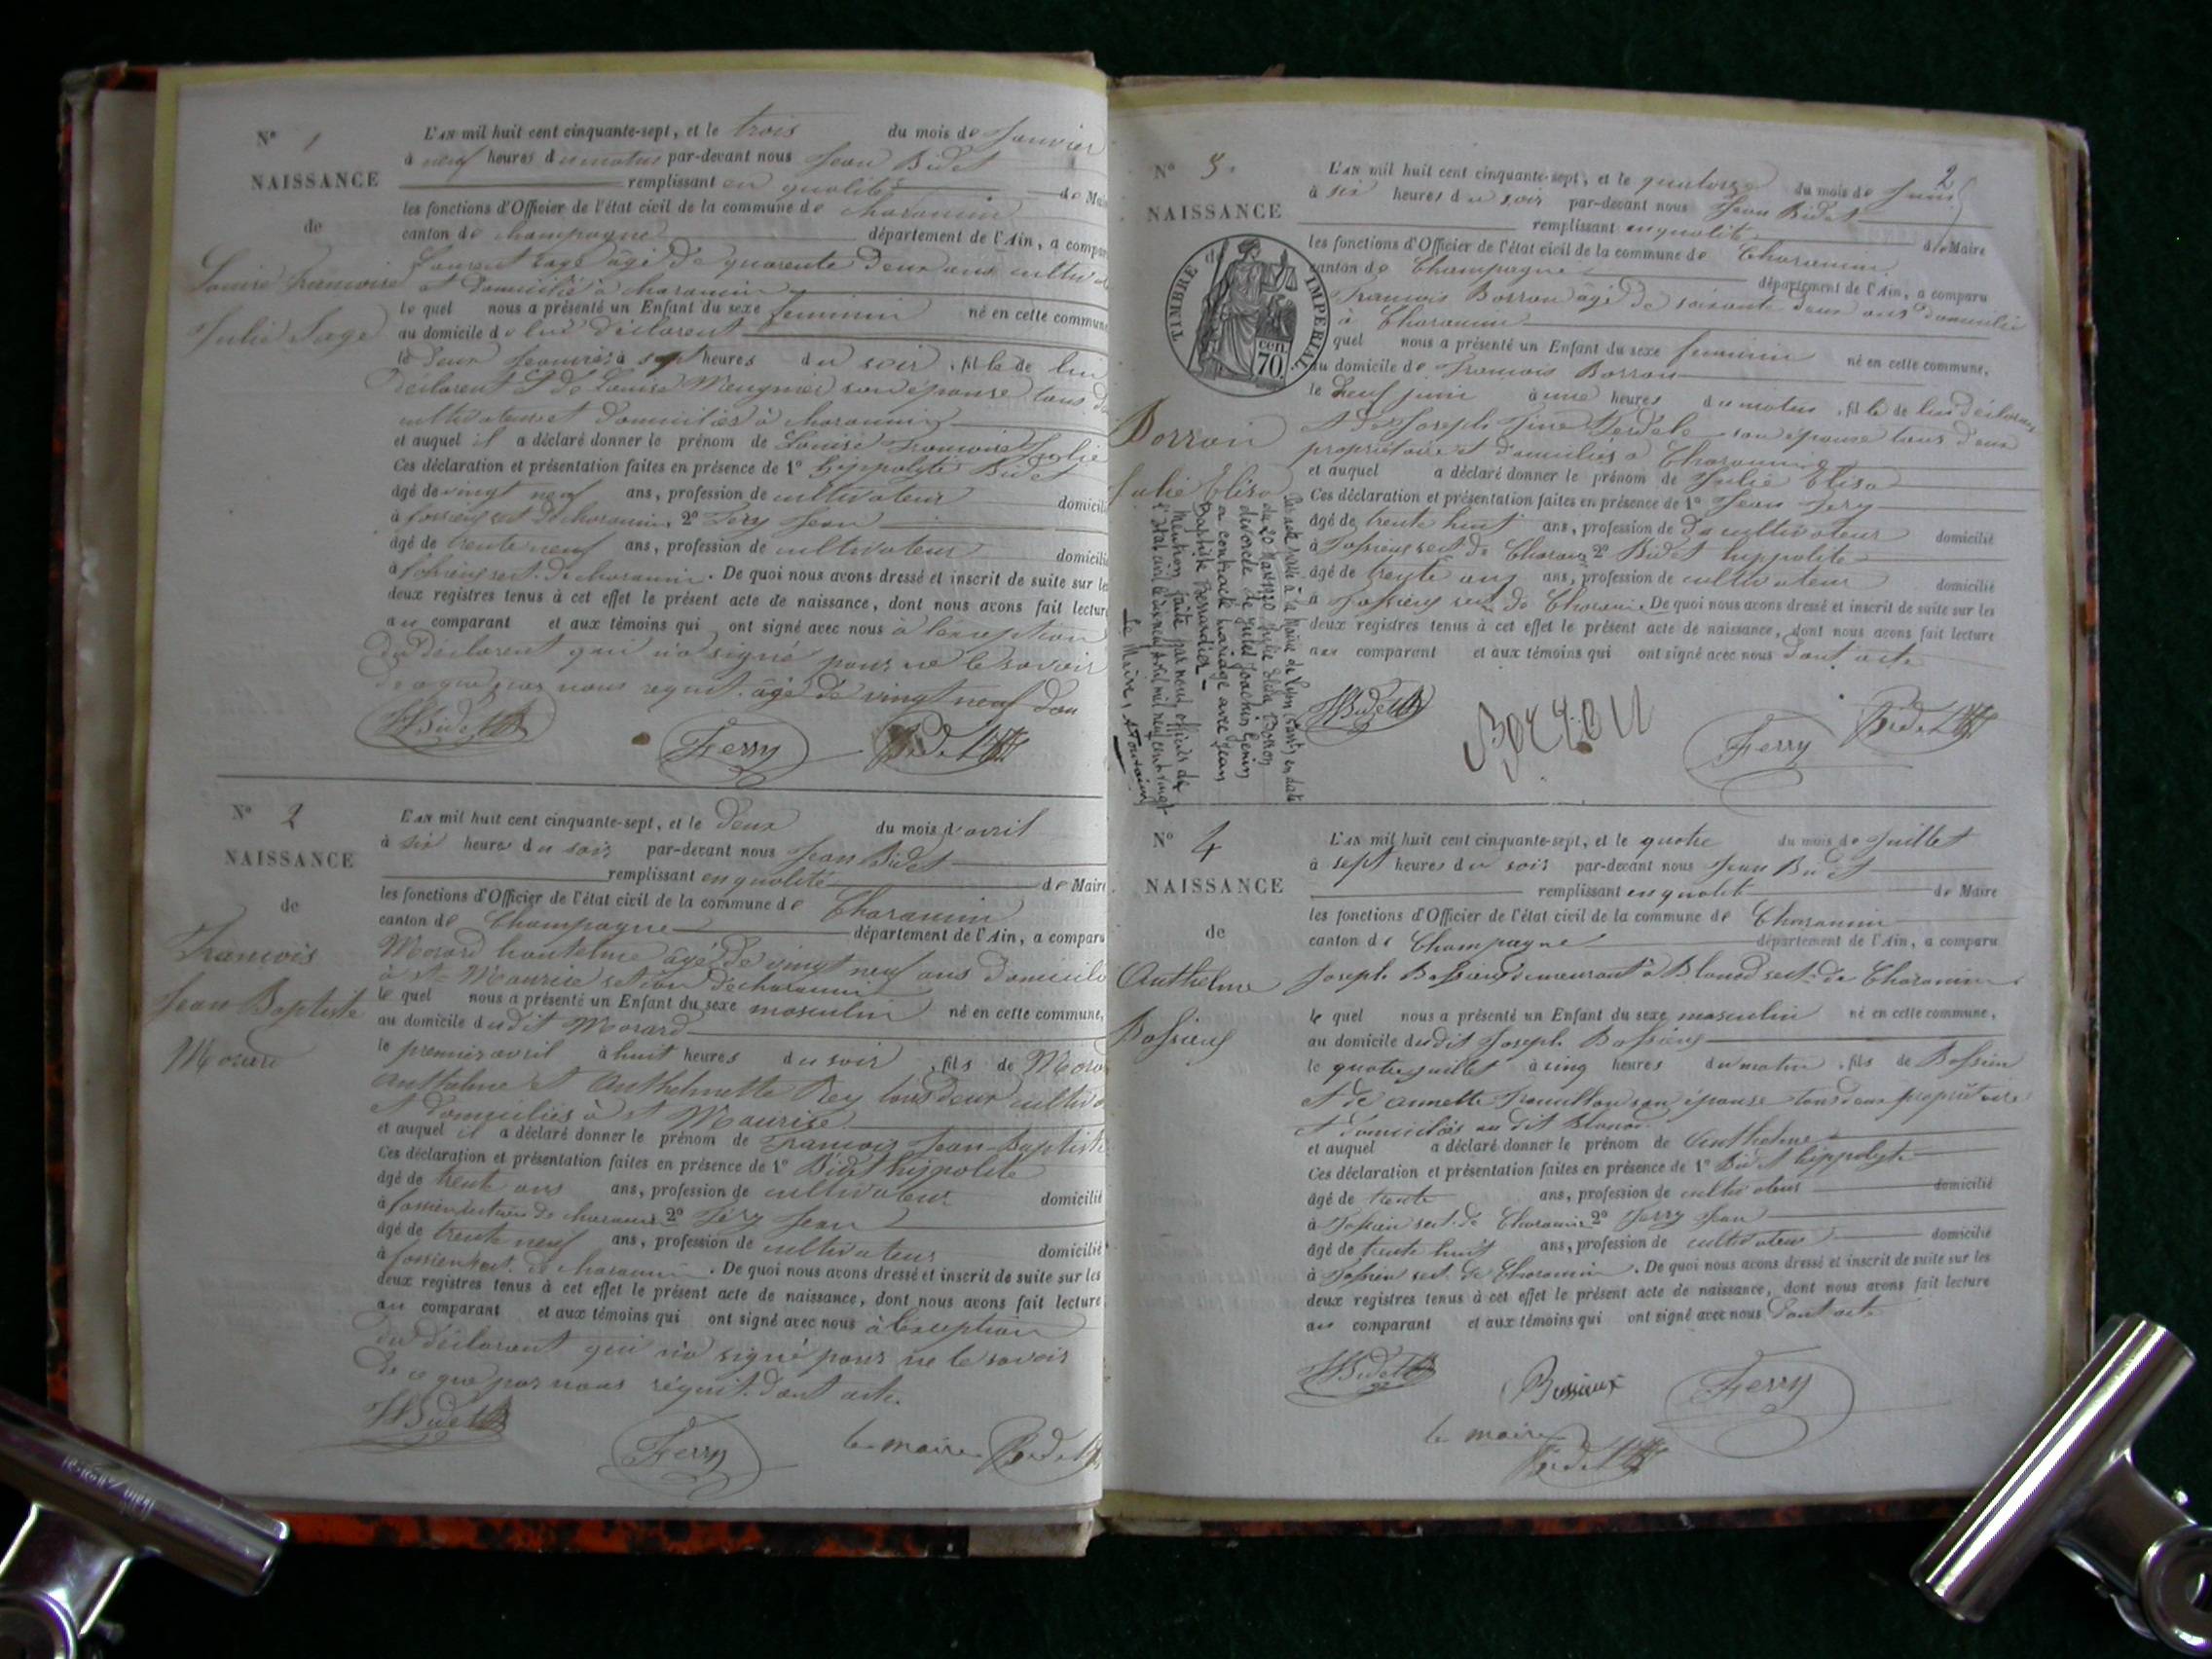 N° 1
NAISSANCE
de
Louise Francoise
Julie Sage
L'AN mil huit cent cinquante-sept, et le trois du mois de Janvier
à neuf heures du matin par-devant nous Jean Bidet
remplissant en qualité de Mai
les fonctions d'Officier de l'état civil de la commune de Charancin
canton de Champagne département de l'Ain, a compar
Laurent Sage âgé de quarente deux ans
et domicilié à charancin
le quel nous a présenté un Enfant du sexe feminin né en cette commune
au domicile de lui déclarent
le deux Janvier à sept heures du soir, fille de lui
déclarent et de Louise son épouse tous d
cultivateurs et domiciliés à charancin
et auquel il a déclaré donner le prénom de Louise Francoise Julie
Ces déclaration et présentation faites en présence de 1° hyppolyte Bidet
âgé de vingt neuf ans, profession de cultivateur domicili
à sect. de charancin, 2° Fery Jean
âgé de trente neuf ans, profession de cultivateur domicilié
à sect. de charancin. De quoi nous avons dressé et inscrit de suite sur le
deux registres tenus à cet effet le présent acte de naissance, dont nous avons fait lectur
au comparant et aux témoins qui ont signé avec nous à l'exception
du déclarent qui n'a signé pour ne le savoir
de ce que par nous requit. âgé de vingt neuf dan
HBidet Ferry Bidet
N° 2
NAISSANCE
de
Francois
Jean Baptiste
Morard
L'AN mil huit cent cinquante-sept, et le deux du mois d'avril
à six heures du soir par-devant nous Jean Bidet
remplissant en qualité de Maire
les fonctions d'Officier de l'état civil de la commune de Charancin
canton de Champagne département de l'Ain, a comparu
Morard hantelme agé de vingt neuf ans domicile
à st Maurice section de charancin
le quel nous a présenté un Enfant du sexe masculin né en cette commune,
au domicile dudit Morard
le premier avril à huit heures du soir, fils de Morar
Anthelme et Anthelmette Rey tous deux cultiva
et domiciliés à st Maurice
et auquel il a déclaré donner le prénom de Francois Jean-Baptiste
Ces déclaration et présentation faites en présence de 1° Bidet hippolite
âgé de trente ans ans, profession de cultivateur domicilié
à section de charancin 2° Féry Jean
âgé de trente neuf ans, profession de cultivateur domicilié
à sect. de charancin. De quoi nous avons dressé et inscrit de suite sur les
deux registres tenus à cet effet le présent acte de naissance, dont nous avons fait lecture
au comparant et aux témoins qui ont signé avec nous à l'exception
du déclarant qui n'a signé pour ne le savoir
de ce que par nous réquit. dont acte.
HBidet Ferry le maire Bidet
2
N° 3.
NAISSANCE
de
TIMBRE IMPERIAL
70 cen.
Borron
Julie Elisa
Par acte reçu à la Mairie de Lyon en date
du 20 Mars 1920 Julie Elisa Borron
divorcée de Jules Joachim Genin
a contracté mariage avec Jean
Baptiste
Mention faite par nous, officier de
l'état civil, le avril mil neuf cent vingt
Le Maire,
L'AN mil huit cent cinquante-sept, et le quatorze du mois de Juin
à six heures du soir par-devant nous Jean Bidet
remplissant en qualité de Maire
les fonctions d'Officier de l'état civil de la commune de Charancin
canton de Champagne département de l'Ain, a comparu
Francois Borron âgé de soixante deux ans domicilié
à Charancin
quel nous a présenté un Enfant du sexe feminin né en cette commune,
au domicile de Francois Borron
le neuf juin à une heures du matin, fille de lui déclarant
et de Joseph Fine son épouse tous deux
propriétaire et domiciliés à Charancin
et auquel a déclaré donner le prénom de Julie Elisa
Ces déclaration et présentation faites en présence de 1° Jean Fery
âgé de trente huit ans, profession de cultivateur domicilié
à sect. de Charancin 2° Bidet hippolite
âgé de trente ans ans, profession de cultivateur domicilié
à sect. de Charancin. De quoi nous avons dressé et inscrit de suite sur les
deux registres tenus à cet effet le présent acte de naissance, dont nous avons fait lecture
aux comparant et aux témoins qui ont signé avec nous dont acte
HBidet Borron Ferry Bidet
N° 4
NAISSANCE
de
Anthelme
Bossieux
L'AN mil huit cent cinquante-sept, et le quatre du mois de Juillet
à sept heures du soir par-devant nous Jean Bidet
remplissant en qualité de Maire
les fonctions d'Officier de l'état civil de la commune de Charancin
canton de Champagne département de l'Ain, a comparu
Joseph Bossieux demeurant à Blanad sect. de Charancin
le quel nous a présenté un Enfant du sexe masculin né en cette commune,
au domicile dudit Joseph Bossieux
le quatre juillet à cinq heures du matin, fils de Bossieu
et de annette son épouse tous deux propriétaire
et domiciliés au dit
et auquel a déclaré donner le prénom de Anthelme
Ces déclaration et présentation faites en présence de 1° Bidet hippolyte
âgé de trente ans, profession de cultivateur domicilié
à sect. de Charancin 2° Ferry Jean
âgé de trente huit ans, profession de cultivateur domicilié
à sect. de Charancin. De quoi nous avons dressé et inscrit de suite sur les
deux registres tenus à cet effet le présent acte de naissance, dont nous avons fait lecture
au comparant et aux témoins qui ont signé avec nous dont acte
HBidet Bossieux Ferry
le maire Bidet